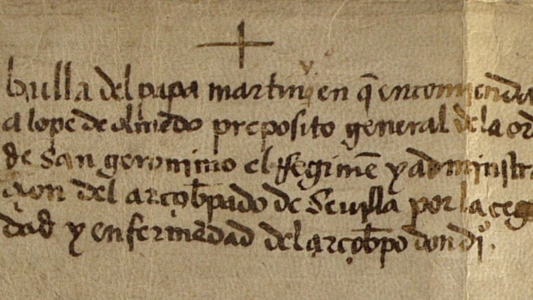 bulla del papa martin v en q̄ encomienda
a lope de olmedo preposito general de la ord
de san geronimo el rregimē y administra
çion del arçob̄pado de sevilla por la çeg
dad y enfermedad del arçob̄po don diº.